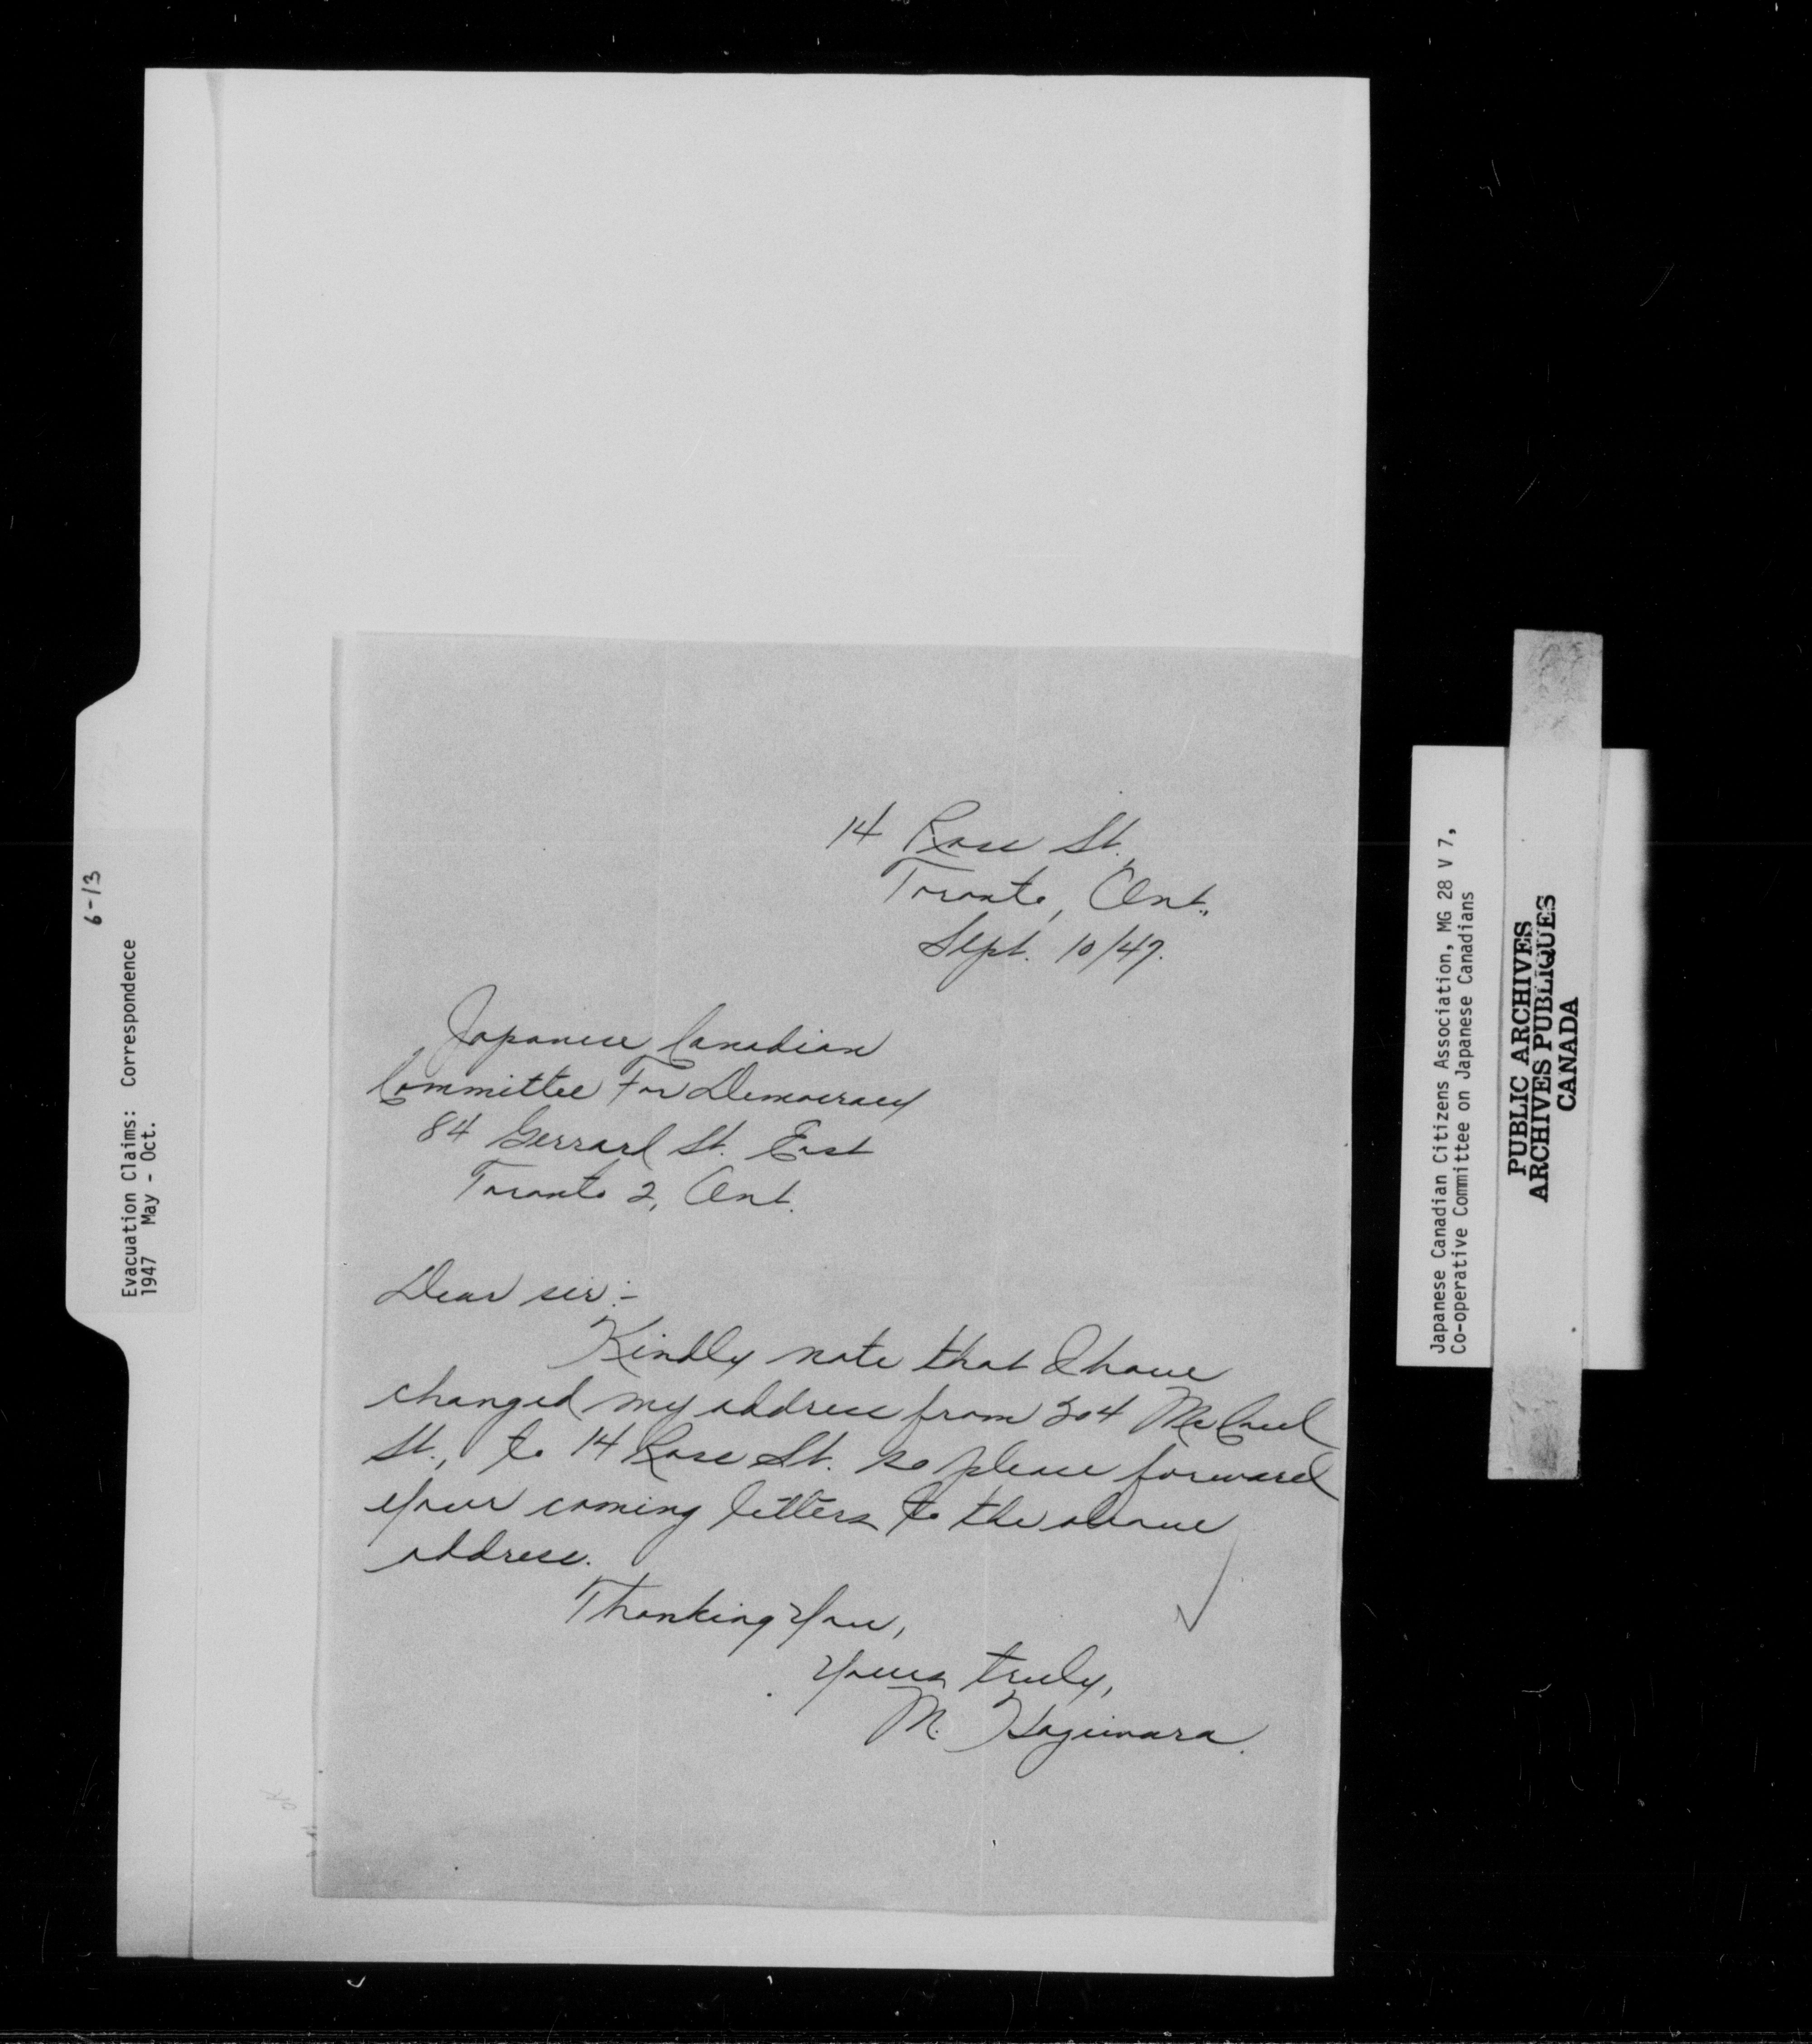 6-13
Evacuation Claims: Correspondence
1947 May - Oct.
14 Rose St.
Toronto, Ont.,
Sept. 10/47.
Japanese Canadian
Committee For Democracy
84 Gerrard St. East
Toronto 2, Ont.
Dear sir:-
Kindly note that I have
changed my address from 304 McCaul
St., to 14 Rose St. so please forward
your coming letters to the above
address.
Thanking You,
Yours truly,
M. Hagiwara.
Japanese Canadian Citizens Association, MG 28 V 7,
Co-operative Committee on Japanese Canadians
PUBLIC ARCHIVES
ARCHIVES PUBLIQUES
CANADA